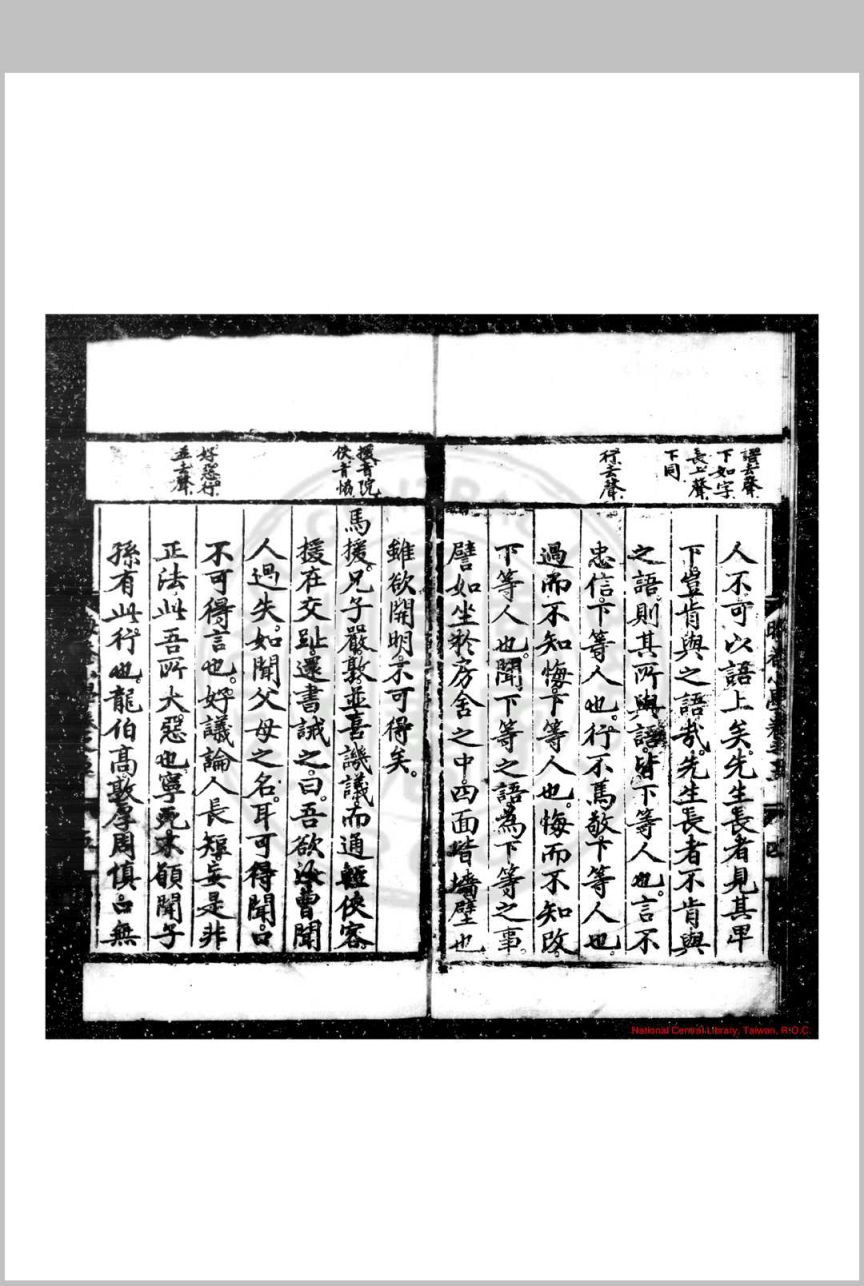 語去聲
下如字
長上聲
下同
行去聲
人不可以語上矣。先生長者見其卑
下豈肯與之語哉。先生長者不肯與
之語則其所與語皆下等人也。言不
忠信下等人也。行不篤敬下等人也。
過而不知悔下等人也。悔而不知改
下等人也。聞下等之語為下等之事。
譬如坐於房舍之中四面皆墻壁也
援音院
俠音協
好惡行
並去聲
雖欲開明不可得矣。
馬援。兄子嚴敦並喜譏議。而通輕俠客
援在交趾。還書誡之。曰。吾欲汝曹聞
人過失如聞父母之名。耳可得聞。口
不可得言也。好議論人長短妄是非
正法此吾所大惡也寧死不願聞子
孫有此行也。龍伯高敦厚周慎口無
National Central Library, Taiwan, R.O.C.